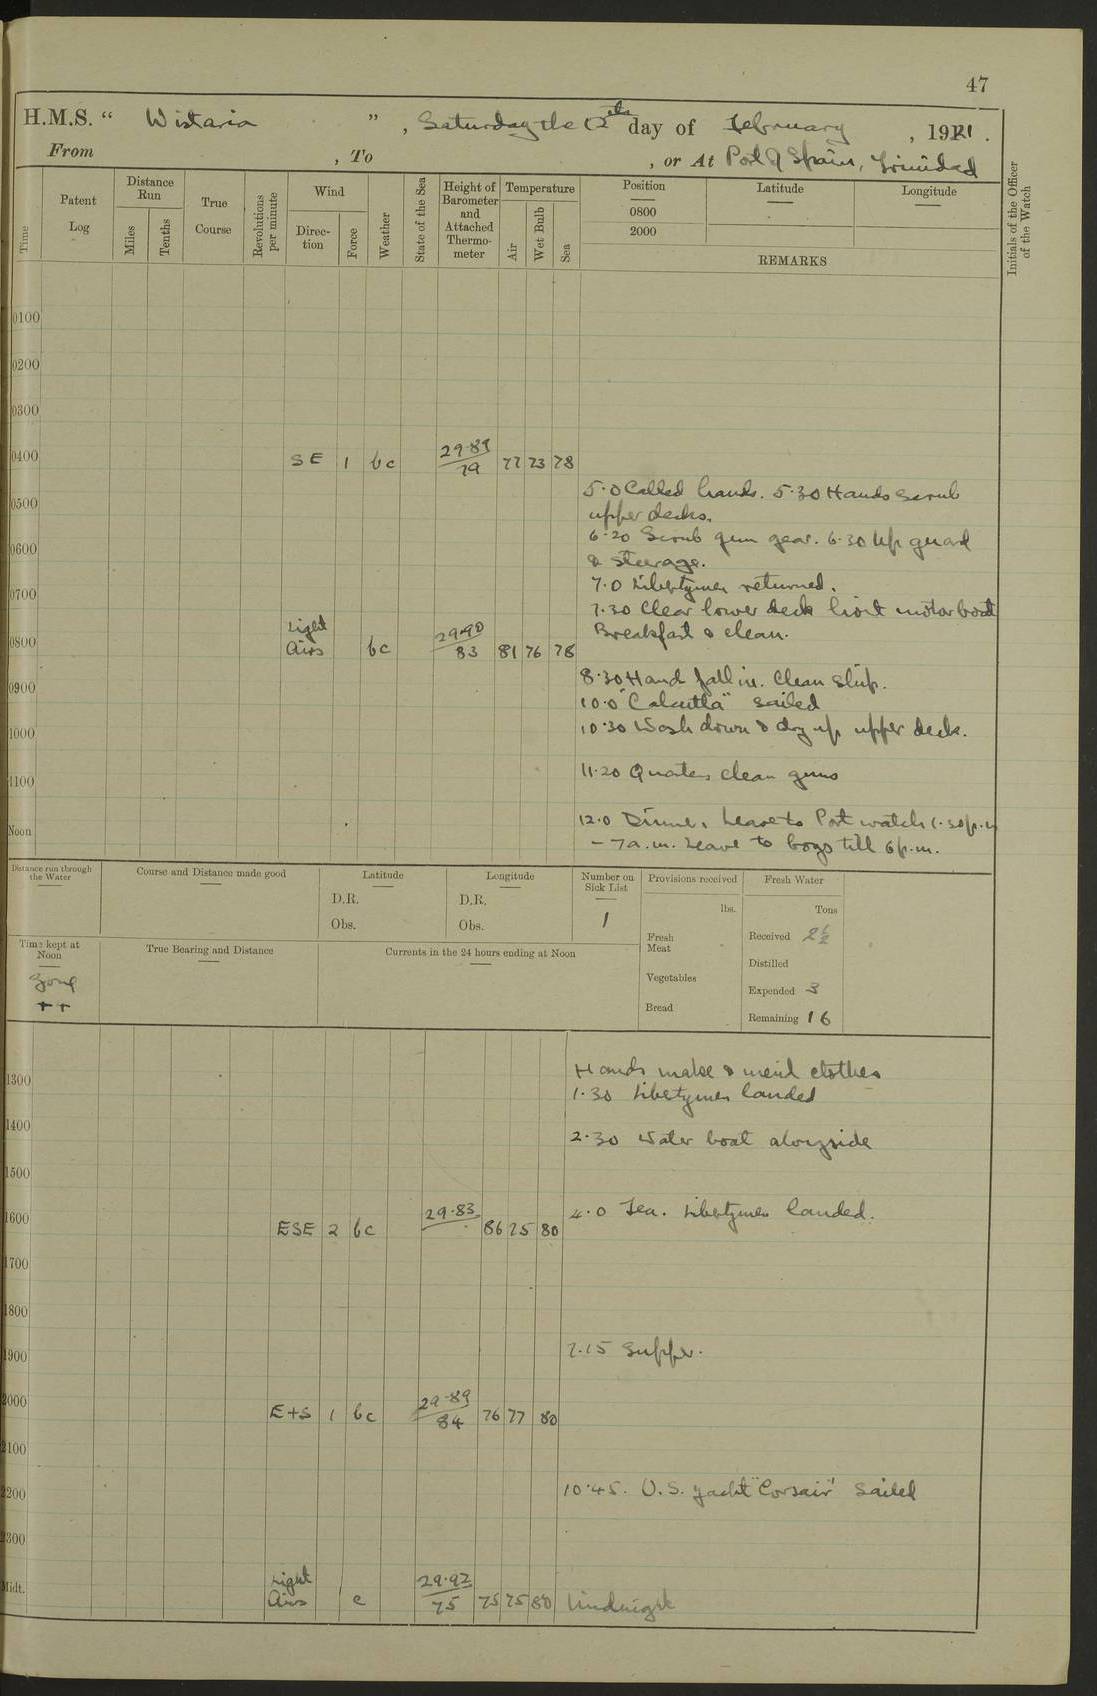 47
H.M.S. " Wistaria ", Saturday the 12th day of February, 1921.
From , To , or At Port of Spain, Trinidad
Time
Patent Log
Distance Run
Miles
Tenths
True Course
Revolutions per minute
Wind
Direction
Force
Weather
State of the Sea
Height of Barometer and Attached Thermometer
Temperature
Air
Wet Bulb
Sea
Position
0800
2000
Latitude
Longitude
REMARKS
Initials of the Officer of the Watch
0100
0200
0300
0400 SE 1 bc 29.89/79 77 73 78
5.0 Called hands. 5.30 Hands scrub
0500
upper decks.
6.20 Scrub gun gear. 6.30 Up guard
0600
& steerage.
7.0 Libertymen returned.
0700
7.30 Clear lower deck hoist motor boat
Breakfast & clean.
0800 Light Airs bc 29.90/83 81 76 78
8.30 Hands fall in. Clean ship.
0900
10.0 "Calcutta" sailed
1000
10.30 Wash down & dry up upper deck.
11.20 Quarters clean guns
1100
12.0 Dinner. Leave to Port watch 1.30 p.m
Noon
– 7 a.m. Leave to boys till 6 p.m.
Distance run through the Water
Course and Distance made good
Latitude
D.R.
Obs.
Longitude
D.R.
Obs.
Number on Sick List
1
Provisions received
lbs.
Fresh Meat
Vegetables
Bread
Fresh Water
Tons
Received 2½
Distilled
Expended 3
Remaining 16
Time kept at Noon
Zone
++
True Bearing and Distance
Currents in the 24 hours ending at Noon
Hands make & mend clothes
1300
1.30 Libertymen landed
1400
2.30 Water boat alongside
1500
1600 ESE 2 bc 29.83 86 75 80
4.0 Tea. Libertymen landed.
1700
1800
7.15 Supper.
1900
2000 E+S 1 bc 29.89/84 76 77 80
2100
10.45. U.S. yacht "Corsair" sailed
2200
2300
Midt. Light Airs c 29.92/75 75 75 80 Midnight